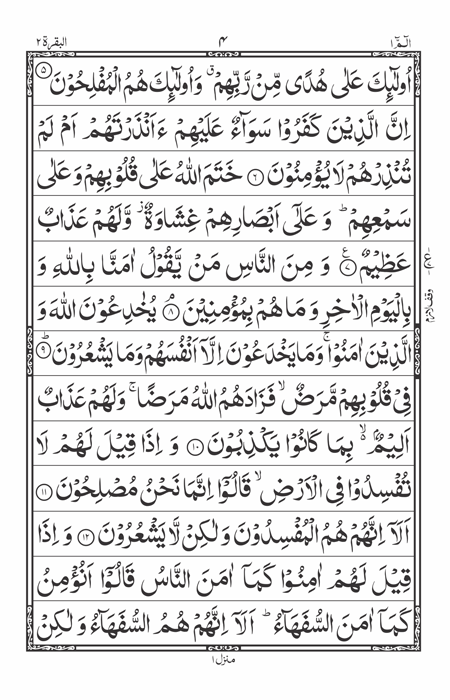 الٓمّٓ ١ ٤ البقرة ٢
اُولٰٓئِكَ عَلٰى هُدًى مِّنْ رَّبِّهِمْ ۗ وَاُولٰٓئِكَ هُمُ الْمُفْلِحُوْنَ ۝٥
اِنَّ الَّذِيْنَ كَفَرُوْا سَوَآءٌ عَلَيْهِمْ ءَاَنْذَرْتَهُمْ اَمْ لَمْ
تُنْذِرْهُمْ لَا يُؤْمِنُوْنَ ۝٦ خَتَمَ اللّٰهُ عَلٰى قُلُوْبِهِمْ وَعَلٰى
سَمْعِهِمْ ؕ وَ عَلٰٓى اَبْصَارِهِمْ غِشَاوَةٌ ؗ وَّلَهُمْ عَذَابٌ
عَظِيْمٌ ۝٧ۧ وَ مِنَ النَّاسِ مَنْ يَّقُوْلُ اٰمَنَّا بِاللّٰهِ وَ
بِالْيَوْمِ الْاٰخِرِ وَ مَا هُمْ بِمُؤْمِنِيْنَ ۝٨ۘ يُخٰدِعُوْنَ اللّٰهَ وَ
الَّذِيْنَ اٰمَنُوْا ۚ وَمَا يَخْدَعُوْنَ اِلَّاۤ اَنْفُسَهُمْ وَمَا يَشْعُرُوْنَ ۝٩ؕ
فِيْ قُلُوْبِهِمْ مَّرَضٌ ۙ فَزَادَهُمُ اللّٰهُ مَرَضًا ۚ وَلَهُمْ عَذَابٌ
اَلِيْمٌ ۢ ۙ بِمَا كَانُوْا يَكْذِبُوْنَ ۝١٠ وَ اِذَا قِيْلَ لَهُمْ لَا
تُفْسِدُوْا فِي الْاَرْضِ ۙ قَالُوْۤا اِنَّمَا نَحْنُ مُصْلِحُوْنَ ۝١١
اَلَاۤ اِنَّهُمْ هُمُ الْمُفْسِدُوْنَ وَ لٰكِنْ لَّا يَشْعُرُوْنَ ۝١٢ وَ اِذَا
قِيْلَ لَهُمْ اٰمِنُوْا كَمَاۤ اٰمَنَ النَّاسُ قَالُوْۤا اَنُؤْمِنُ
كَمَاۤ اٰمَنَ السُّفَهَآءُ ؕ اَلَاۤ اِنَّهُمْ هُمُ السُّفَهَآءُ وَ لٰكِنْ
منزل ١
وقف لازم